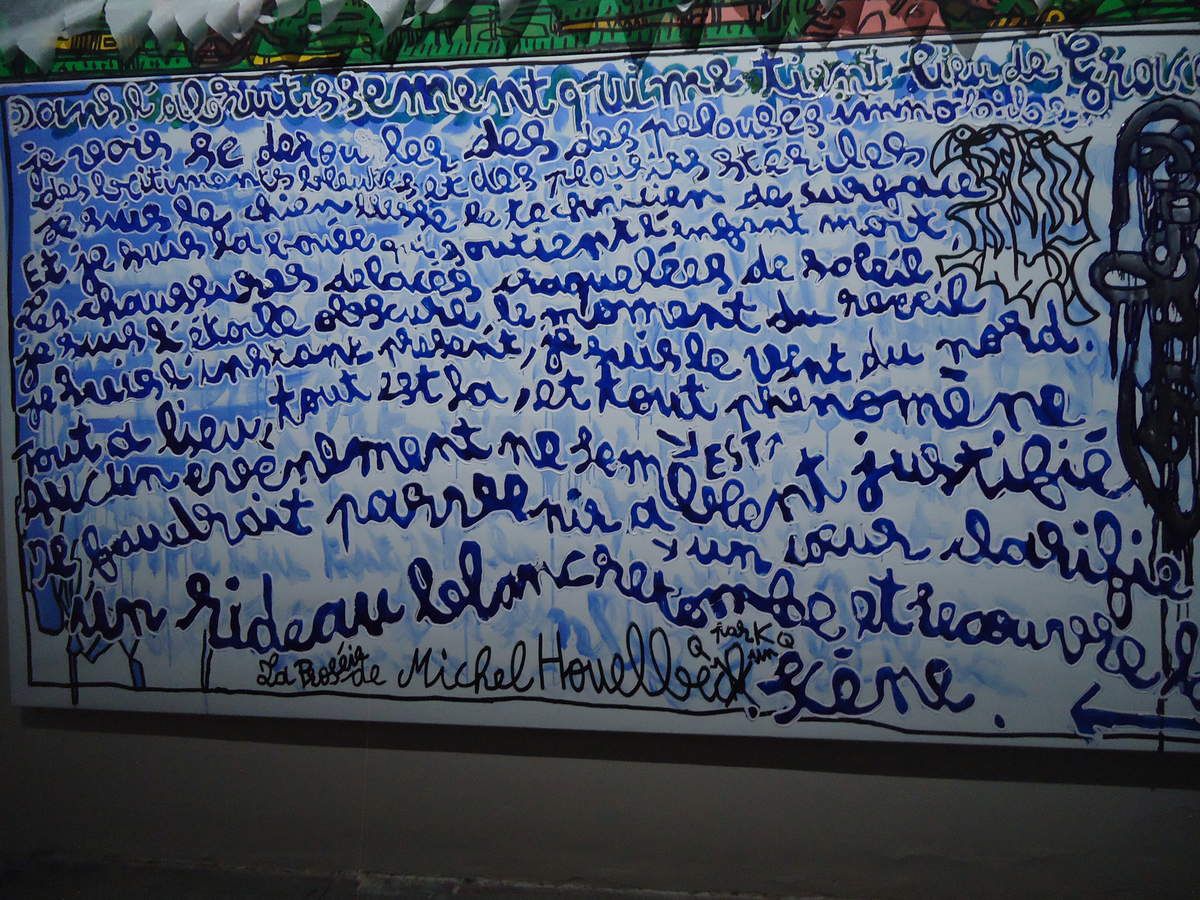 Dans l'abrutissement qui me tient lieu de Grâce
je vois se dérouler des des pelouses immobiles
des bâtiments bleutés et des plaisirs stériles
je suis le chien blessé le technicien de surface
Et je suis la bouée qui soutient l'enfant mort,
Les chaussures délacées craquelées de soleil
je suis l'étoile obscure, le moment du réveil
je suis l'instant présent, je suis le vent du nord.
Tout a lieu, tout est là, et tout phénomène
EST
aucun evenement ne semblant justifié
Il faudrait parvenir a un cœur clarifié
un rideau blanc retombe et recouvre la
scène.
La Poésie de Michel Houellbeck
par K
Q un Q